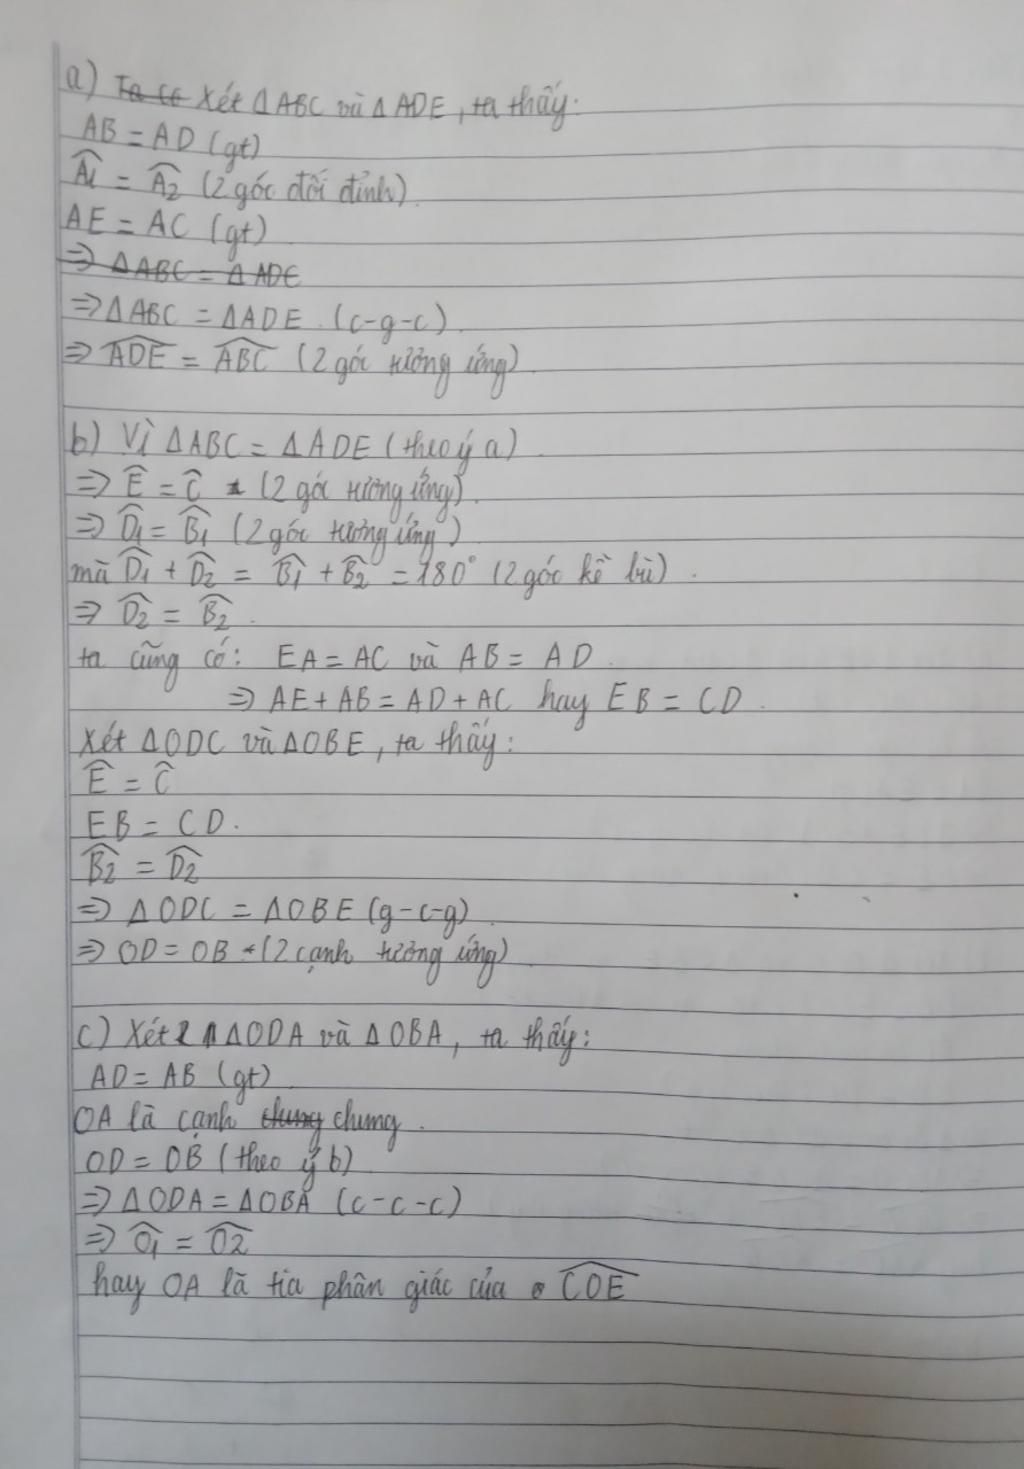 a) Ta có Xét ΔABC và ΔADE, ta thấy:
AB = AD (gt)
Â1 = Â2 (2 góc đối đỉnh).
AE = AC (gt)
=> ΔABC = ΔADE
=> ΔABC = ΔADE (c-g-c).
=> \widehat{ADE} = \widehat{ABC} (2 góc tương ứng).
b) Vì ΔABC = ΔADE (theo ý a)
=> Ê = Ĉ (2 góc tương ứng).
=> \widehat{D1} = \widehat{B1} (2 góc tương ứng)
mà \widehat{D1} + \widehat{D2} = \widehat{B1} + \widehat{B2} = 180° (2 góc kề bù).
=> \widehat{D2} = \widehat{B2}.
ta cũng có: EA = AC và AB = AD.
=> AE + AB = AD + AC hay EB = CD.
Xét ΔODC và ΔOBE, ta thấy:
Ê = Ĉ
EB = CD.
\widehat{B2} = \widehat{D2}
=> ΔODC = ΔOBE (g-c-g)
=> OD = OB (2 cạnh tương ứng)
c) Xét ΔODA và ΔOBA, ta thấy:
AD = AB (gt)
OA là cạnh chung chung.
OD = OB (theo ý b)
=> ΔODA = ΔOBA (c-c-c)
=> \widehat{O1} = \widehat{O2}
hay OA là tia phân giác của \widehat{COE}